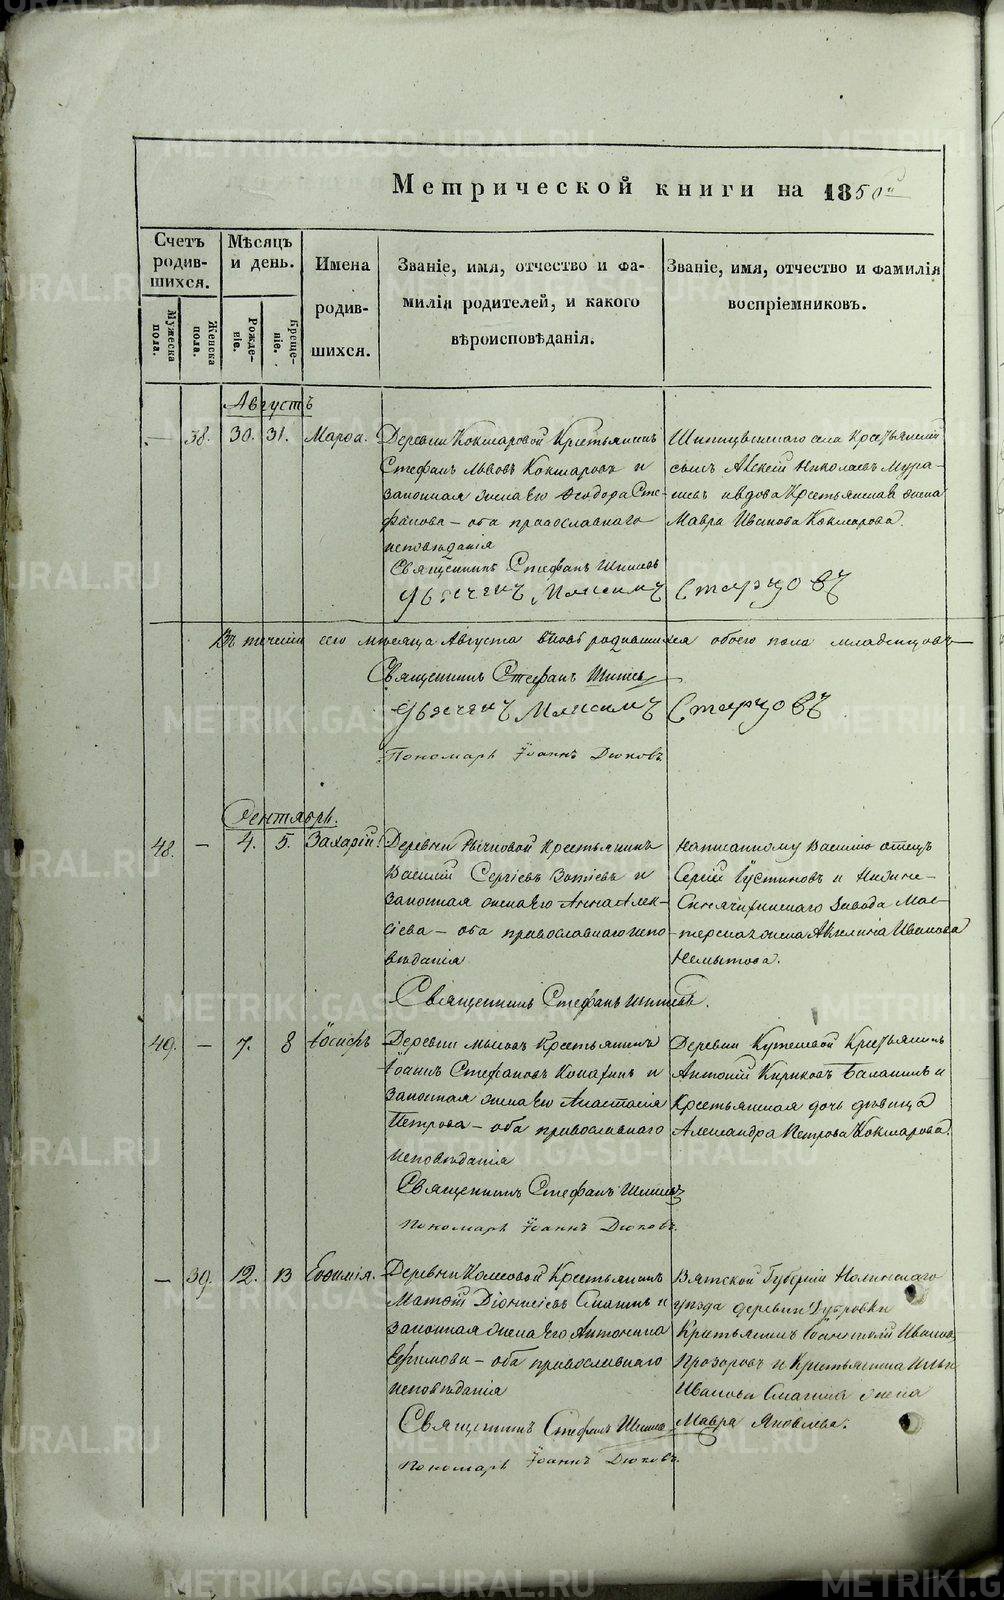 METRIKI.GASO-URAL.RU
Метрической книги на 1850й
Счетъ родив-шихся.
Мѣсяцъ и день.
Имена родив-шихся.
Званіе, имя, отчество и фа-
милія родителей, и какого
вѣроисповѣданія.
Званіе, имя, отчество и фамилія
воспріемниковъ.
Мужеска пола.
Женска пола.
Рожде-ніе.
Креще-ніе.
Августъ
— 38. 30. 31. Марѳа.
Деревни Кокшаровой Крестьянинъ
Стефанъ Львовъ Кокшаровъ и
законная жена Его Ѳеодора Сте-
фанова — оба православнаго
исповѣданія
села Крестьянскій
сынъ Алексій Николаевъ Мура-
шевъ и вдова Крестьянская жена
Мавра Иванова Кокшарова.
Священникъ Стефанъ Шишевъ
Дьячекъ Максимъ Старцовъ
Въ теченіи сего мѣсяца Августа вновь родившихся обоего пола младенцовъ
Священникъ Стефанъ Шишевъ
Дьячекъ Максимъ Старцовъ
Пономарь Іоаннъ Дюковъ
Сентябрь.
48. — 4. 5. Захарій.
Деревни Рычковой Крестьянинъ
Василій Сергіевъ Зотіевъ и
законная жена Его Анна Алек-
сіева — оба православнаго испо-
вѣданія
Написанному Василію отецъ
Сергій Іустиновъ и Нижне-
Синячихинскаго Завода Мас-
терская жена Акилина Иванова
Немытова.
Священникъ Стефанъ Шишевъ.
49. — 7. 8 Іосифъ
Деревни Крестьянинъ
Іоаннъ Стефановъ и
законная жена Его Анастасія
Петрова — оба православнаго
исповѣданія
Деревни Кутеневой Крестьянинъ
Антоній Кириковъ Балакинъ и
Крестьянская дочь дѣвица
Александра Петрова Кокшарова.
Священникъ Стефанъ Шишевъ
Пономарь Іоаннъ Дюковъ.
— 39. 12. 13 Евѳимія.
Деревни Крестьянинъ
Матѳій Діонисіевъ Смагинъ и
законная жена Его Антонина
Ефимова — оба православнаго
исповѣданія
Вятской Губерніи Нолинскаго
уѣзда деревни Дубровки
Крестьянинъ Иванов
Прозоровъ и Крестьянина Ильи
Иванова Смагина жена
Мавра Яковлева.
Священникъ Стефанъ Шишев
Пономарь Іоаннъ Дюковъ.